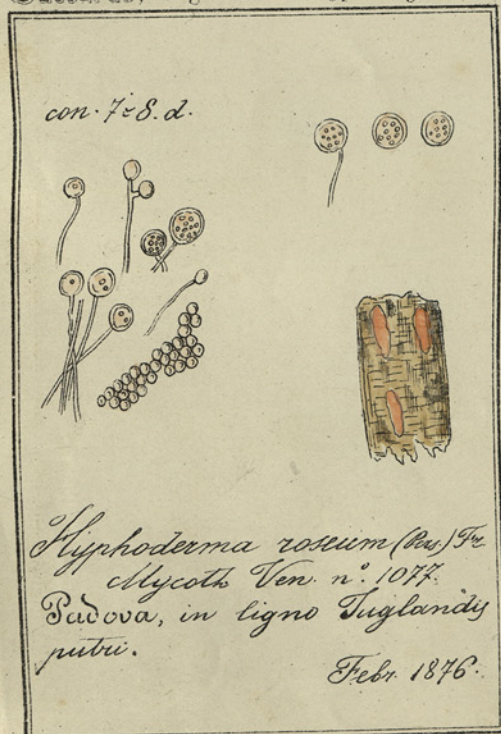 con. 7 = 8. d.
Hyphoderma roseum (Pers) Fr
Mycoth Ven. n.º 1077.
Padova, in ligno Juglandis
putri.
Febr. 1876.